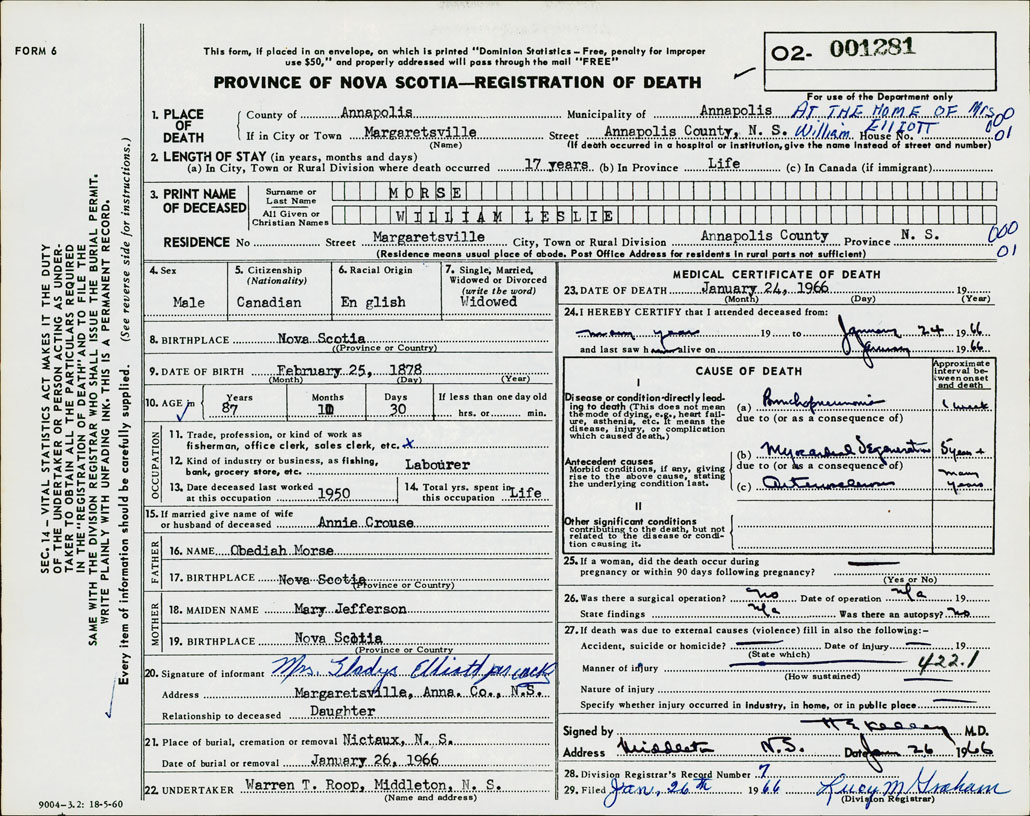 FORM 6
This form, if placed in an envelope, on which is printed "Dominion Statistics – Free, penalty for improper
use $50," and properly addressed will pass through the mail "FREE"
PROVINCE OF NOVA SCOTIA—REGISTRATION OF DEATH
02- 001281
For use of the Department only
1. PLACE OF DEATH
County of Annapolis Municipality of Annapolis AT THE HOME OF Mrs
William ELLIOTT
If in City or Town Margaretsville Street Annapolis County, N. S. House No.
(Name) (If death occurred in a hospital or institution, give the name instead of street and number)
000
01
2. LENGTH OF STAY (in years, months and days)
(a) In City, Town or Rural Division where death occurred 17 years. (b) In Province Life (c) In Canada (if immigrant)
3. PRINT NAME OF DECEASED
Surname or Last Name MORSE
All Given or Christian Names WILLIAM LESLIE
RESIDENCE No Street Margaretsville City, Town or Rural Division Annapolis County Province N. S.
(Residence means usual place of abode. Post Office Address for residents in rural parts not sufficient)
000
01
4. Sex Male
5. Citizenship (Nationality) Canadian
6. Racial Origin En glish
7. Single, Married, Widowed or Divorced (write the word) Widowed
8. BIRTHPLACE Nova Scotia
(Province or Country)
9. DATE OF BIRTH February 25, 1878
(Month) (Day) (Year)
10. AGE in Years 87 Months 10 Days 30 If less than one day old
hrs. or min.
OCCUPATION
11. Trade, profession, or kind of work as
fisherman, office clerk, sales clerk, etc. x
12. Kind of industry or business, as fishing,
bank, grocery store, etc. Labourer
13. Date deceased last worked
at this occupation 1950
14. Total yrs. spent in
this occupation Life
15. If married give name of wife
or husband of deceased Annie Crouse
FATHER
16. NAME Obediah Morse
17. BIRTHPLACE Nova Scotia
(Province or Country)
MOTHER
18. MAIDEN NAME Mary Jefferson
19. BIRTHPLACE Nova Scotia
(Province or Country)
20. Signature of informant Mrs. Gladys Elliott per
Address Margaretsville, Anna. Co., N.S.
Relationship to deceased Daughter
21. Place of burial, cremation or removal Nictaux, N. S.
Date of burial or removal January 26, 1966
22. UNDERTAKER Warren T. Roop, Middleton, N. S.
(Name and address)
MEDICAL CERTIFICATE OF DEATH
23. DATE OF DEATH January 24, 1966 19
(Month) (Day) (Year)
24. I HEREBY CERTIFY that I attended deceased from:
many years 19 to January 24 1966
and last saw him alive on January 1966
CAUSE OF DEATH
Approximate interval between onset and death
I
Disease or condition directly leading to death (This does not mean the mode of dying, e.g., heart failure, asthenia, etc. It means the disease, injury, or complication which caused death.)
(a) Bronchopneumonia 1 week
due to (or as a consequence of)
Antecedent causes
Morbid conditions, if any, giving rise to the above cause, stating the underlying condition last.
(b) Myocardial Degeneration 5 years +
due to (or as a consequence of)
(c) Arteriosclerosis many years
II
Other significant conditions
contributing to the death, but not related to the disease or condition causing it.
25. If a woman, did the death occur during
pregnancy or within 90 days following pregnancy?
(Yes or No)
26. Was there a surgical operation? no Date of operation n/a 19
State findings n/a Was there an autopsy? no
27. If death was due to external causes (violence) fill in also the following:–
Accident, suicide or homicide? Date of injury 19
(State which)
422.1
Manner of injury
(How sustained)
Nature of injury
Specify whether injury occurred in industry, in home, or in public place
Signed by H E Kelley M.D.
Address Middleton N.S. Date Jan 26 1966
28. Division Registrar's Record Number 7
29. Filed Jan. 26th 1966 Lucy M Graham
(Division Registrar)
SEC. 14 – VITAL STATISTICS ACT MAKES IT THE DUTY
OF THE UNDERTAKER OR PERSON ACTING AS UNDER-
TAKER TO OBTAIN ALL THE PARTICULARS REQUIRED
IN THE "REGISTRATION OF DEATH" AND TO FILE THE
SAME WITH THE DIVISION REGISTRAR WHO SHALL ISSUE THE BURIAL PERMIT.
WRITE PLAINLY WITH UNFADING INK. THIS IS A PERMANENT RECORD.
Every item of information should be carefully supplied. (See reverse side for instructions.)
9004–3.2: 18-5-60